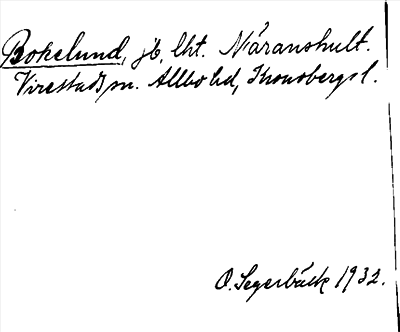 Bokelund, jb, lht. Näranshult.
Virestad sn. Allbo hd, Kronobergs l.
O. Segerbäck 1932.